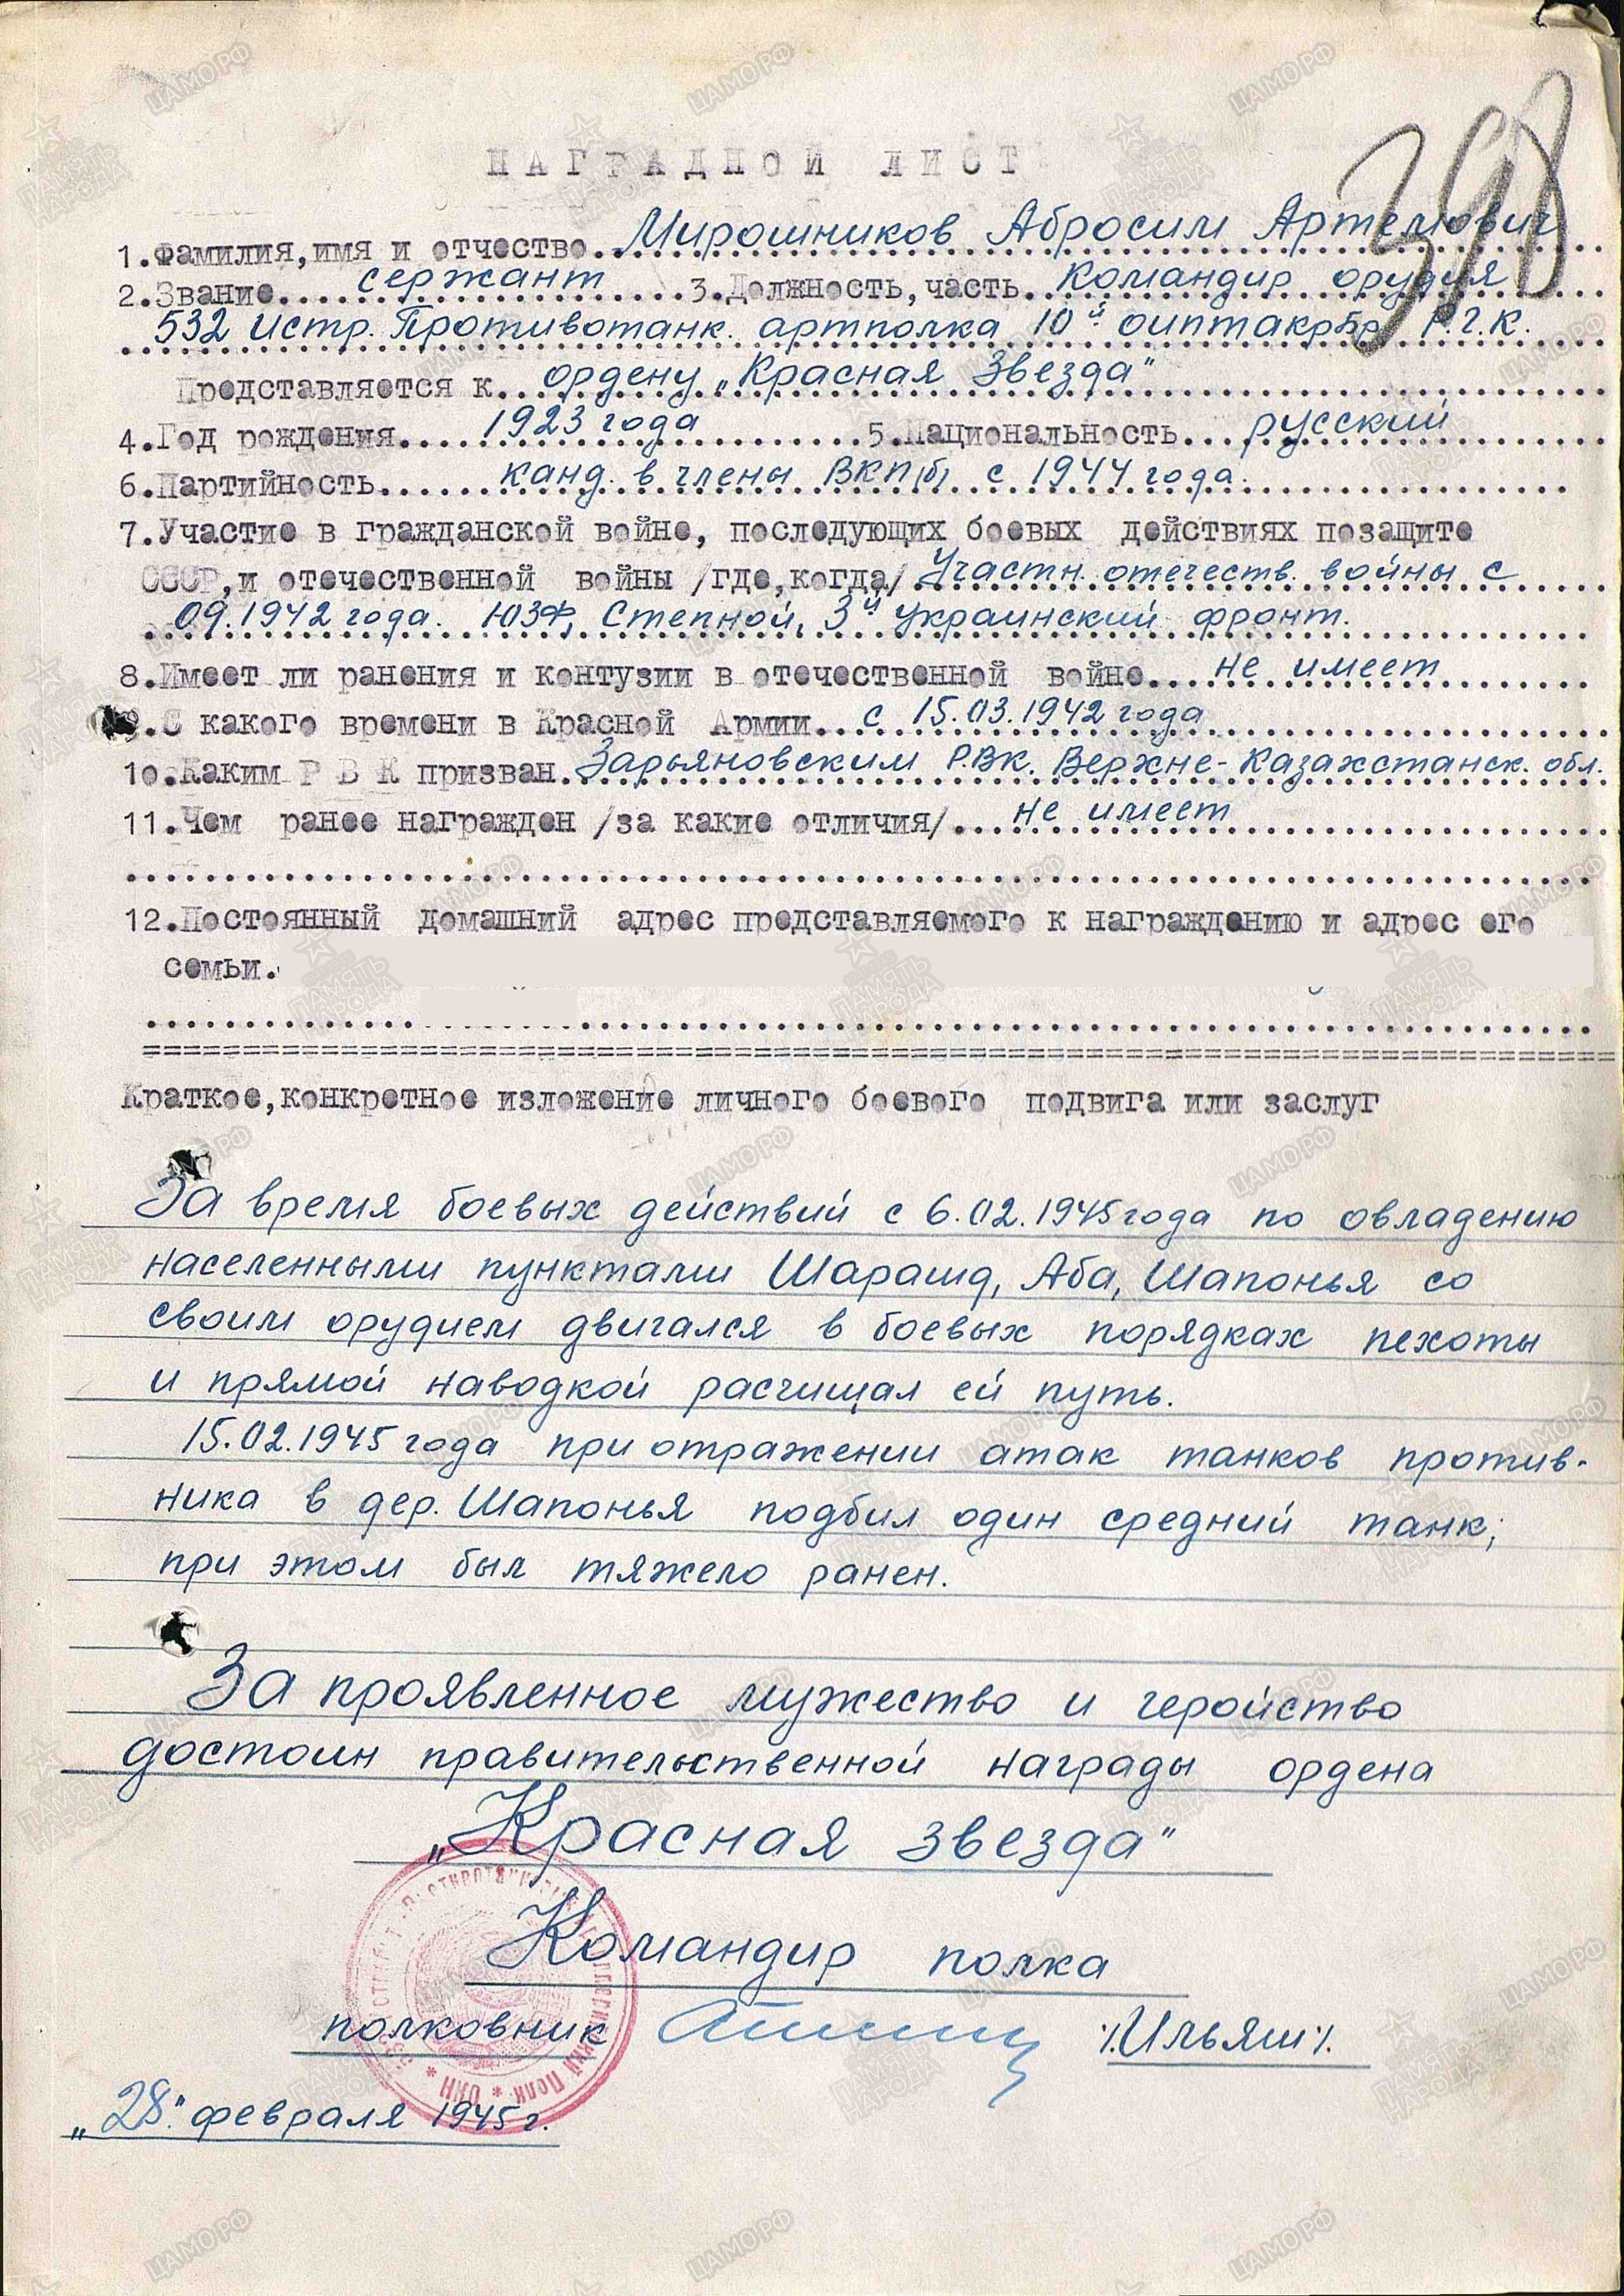 398
НАГРАДНОЙ ЛИСТ
1.Фамилия,имя и отчество. Мирошников Абросим Артемович
2.Звание.... сержант ....3.Должность,часть. Командир орудия
532 Истр. Противотанк. артполка 10й оиптакрбр Р.Г.К.
Представляется к.. ордену „Красная Звезда"
4.Год рождения.... 1923 года ....5.Национальность... русский
6.Партийность...... канд. в члены ВКП(б) с 1944 года.
7.Участие в гражданской войне, последующих боевых действиях позащите
СССР,и отечественной войны /где,когда/ Участн. отечеств. войны с
09.1942 года. ЮЗФ, Степной, 3й Украинский фронт.
8.Имеет ли ранения и контузии в отечественной войне.... не имеет
9.С какого времени в Красной Армии... с 15.03.1942 года
10.Каким Р В К призван. Зарьяновским РВК. Верхне-Казахстанск. обл.
11.Чем ранее награжден /за какие отличия/... не имеет
12.Постоянный домашний адрес представляемого к награждению и адрес его
семьи.
Краткое,конкретное изложение личного боевого подвига или заслуг
За время боевых действий с 6.02.1945 года по овладению
населенными пунктами Шарашд, Аба, Шапонья со
своим орудием двигался в боевых порядках пехоты
и прямой наводкой расчищал ей путь.
15.02.1945 года при отражении атак танков против-
ника в дер. Шапонья подбил один средний танк;
при этом был тяжело ранен.
За проявленное мужество и геройство
достоин правительственной награды ордена
„Красная звезда"
Командир полка
полковник /.Ильяш/.
„28" февраля 1945 г.